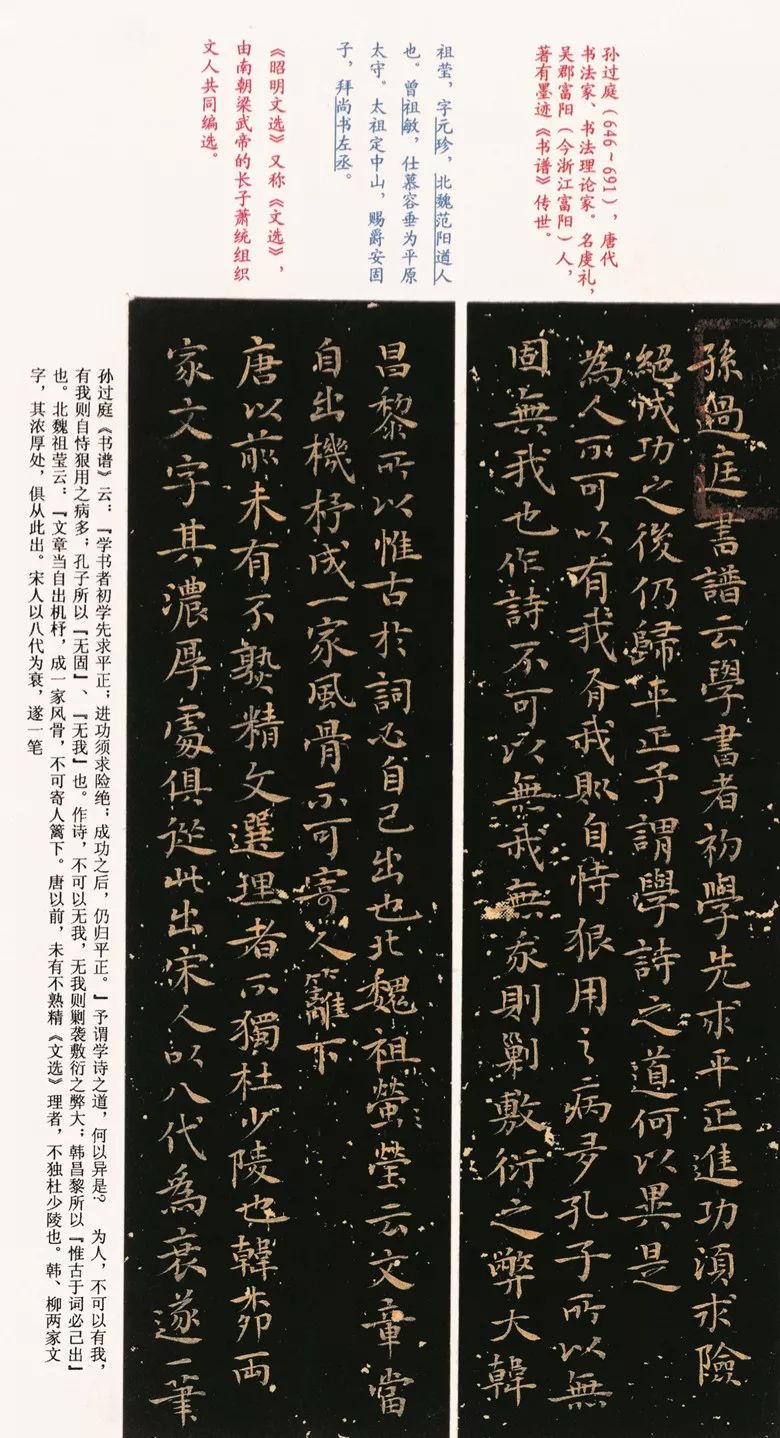 孙过庭（646～691），唐代
书法家、书法理论家。名虔礼，
吴郡富阳（今浙江富阳）人，
著有墨迹《书谱》传世。
祖莹，字元珍，北魏范阳道人
也。曾祖敏，仕慕容垂为平原
太守。太祖定中山，赐爵安固
子，拜尚书左丞。
《昭明文选》又称《文选》，
由南朝梁武帝的长子萧统组织
文人共同编选。
孫過庭書譜云學書者初學先求平正進功須求險
絕成功之後仍歸平正予謂學詩之道何以異是
為人不可以有我有我則自恃狠用之病多孔子所以無
固無我也作詩不可以無我無我則剿敷衍之弊大韓
昌黎所以惟古於詞必自己出也北魏祖螢瑩云文章當
自出機杼成一家風骨不可寄人籬下
唐以前未有不熟精文選理者不獨杜少陵也韓柳兩
家文字其濃厚處俱從此出宋人以八代為衰遂一筆
孙过庭《书谱》云：『学书者初学先求平正；进功须求险绝；成功之后，仍归平正。』予谓学诗之道，何以异是？　为人，不可以有我，
有我则自恃狠用之病多；孔子所以『无固』、『无我』也。作诗，不可以无我，无我则剿袭敷衍之弊大；韩昌黎所以『惟古于词必己出』
也。北魏祖莹云：『文章当自出机杼，成一家风骨，不可寄人篱下。唐以前，未有不熟精《文选》理者，不独杜少陵也。韩、柳两家文
字，其浓厚处，俱从此出。宋人以八代为衰，遂一笔